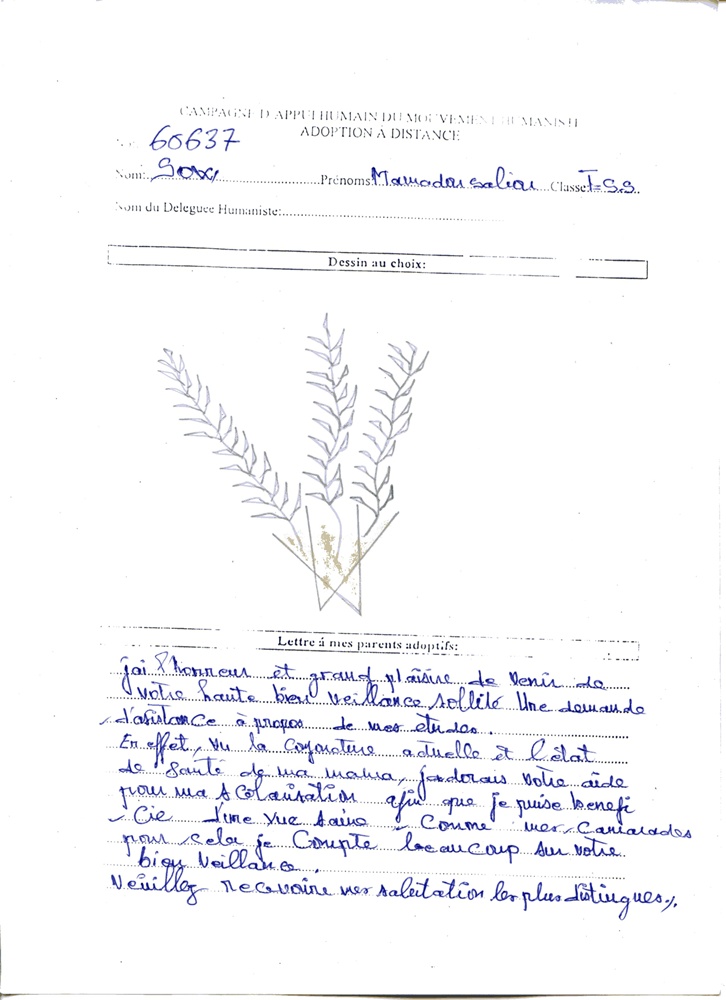 CAMPAGNE D'APPUI HUMAIN DU MOUVEMENT HUMANISTE
ADOPTION À DISTANCE
60637
Nom: Sow Prénoms Mamadou saliou Classe: T=S.S
Nom du Deleguee Humaniste:
Dessin au choix:
Lettre á mes parents adoptifs:
jai l'honneur et grand plaisire de venir de
votre haute bien veillance sollité Une demande
d'asistance à propos de mes études.
En effet, vu la Conjoncture actuelle et l'état
de Santé de ma mama, jadorais votre aide
pour ma scolarisation afin que je puise benefi
Cie d'une vue saine Comme mes Camarades
pour cela je Compte beaucoup sur votre
bien Veillance.
Veuillez recevoire mes salutation les plus distingues./.